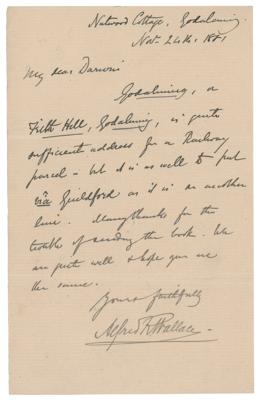 Nutwood Cottage, Godalming.
Novr. 24th. 1881
My dear Darwin
Godalming, or
Frith Hill, Godalming, is quite
sufficient address for a Railway
parcel – but it is as well to put
via Guildford as it is on another
line. Many thanks for the
trouble of sending the book. We
are quite well & hope you are
the same.
Yours faithfully
Alfred R. Wallace